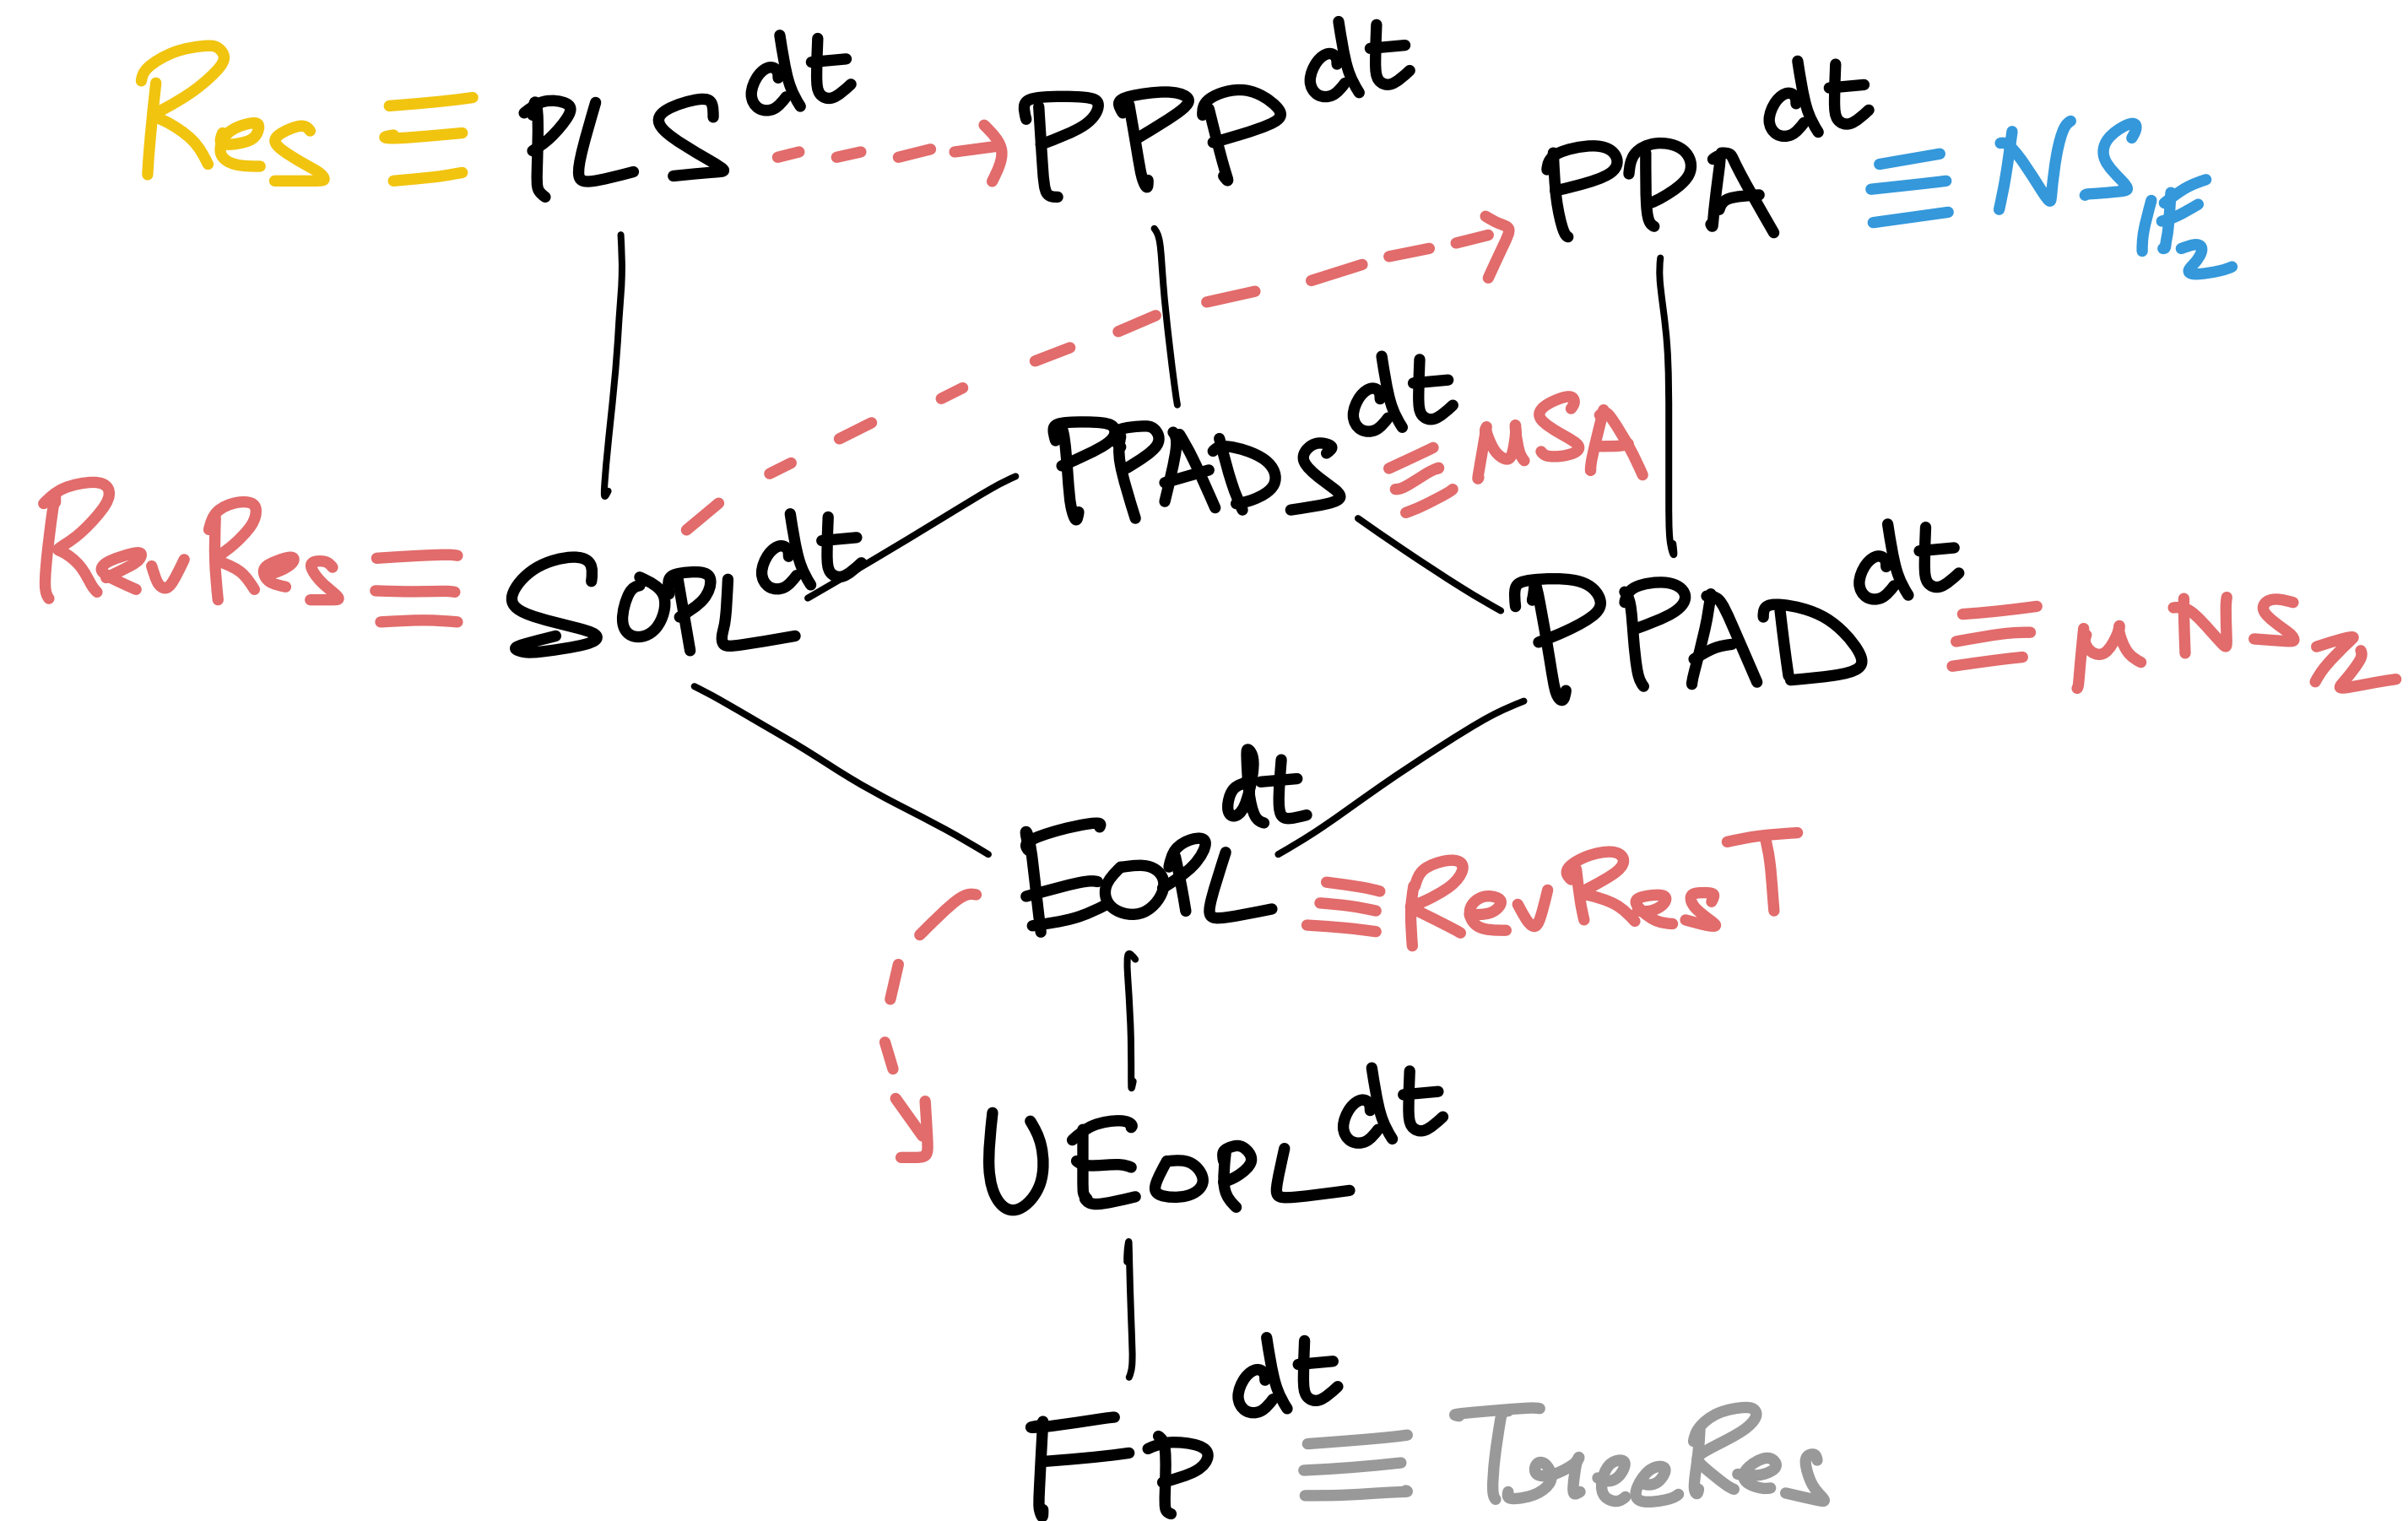 Res ≡ PLS^dt PPP^dt PPA^dt ≡ NS_F2
RevRes ≡ SOPL^dt PPADS^dt ≡ uSA PPAD^dt ≡ uNS_Z
EOPL^dt ≡ RevResT
UEOPL^dt
FP^dt ≡ TreeRes